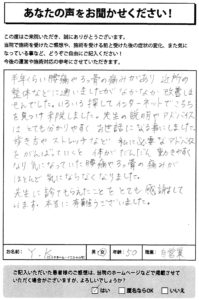 あなたの声をお聞かせください!
この度はご来院いただき、誠にありがとうございます。
当院で施術を受けたご感想や、施術を受ける前と受けた後の症状の変化、また気に
なっている事など、どうぞご自由にご記入ください!
今後の運営や施術対応の参考にさせていただきます。
半年くらい腰痛や、首の痛みがあり 近所の
整体などに通いましたがなかなか 改善しま
せんでした。いろいろ探してインターネットでこちら
を見つけ来院しました。先生の説明やアドバイス
はとても分かりやすく お世話になる事にしました。
歩き方や ストレッチなど 私に必要なアドバイス
と がんばっていくと 体がだんだん 動きやすく
なり 気になっていた腰痛や、首の痛みが
ほとんど 気にならなくなりました。
先生に診てもらったことを とても 感謝して
います。本当に有難うございました。
お名前: Y.K 男・女 年齢: 50 職業: 自営業
ご記入いただいた患者様のご感想は、当院のホームページなどで掲載させて
いただく場合がございますが、よろしいでしょうか?
はい 匿名ならOK いいえ